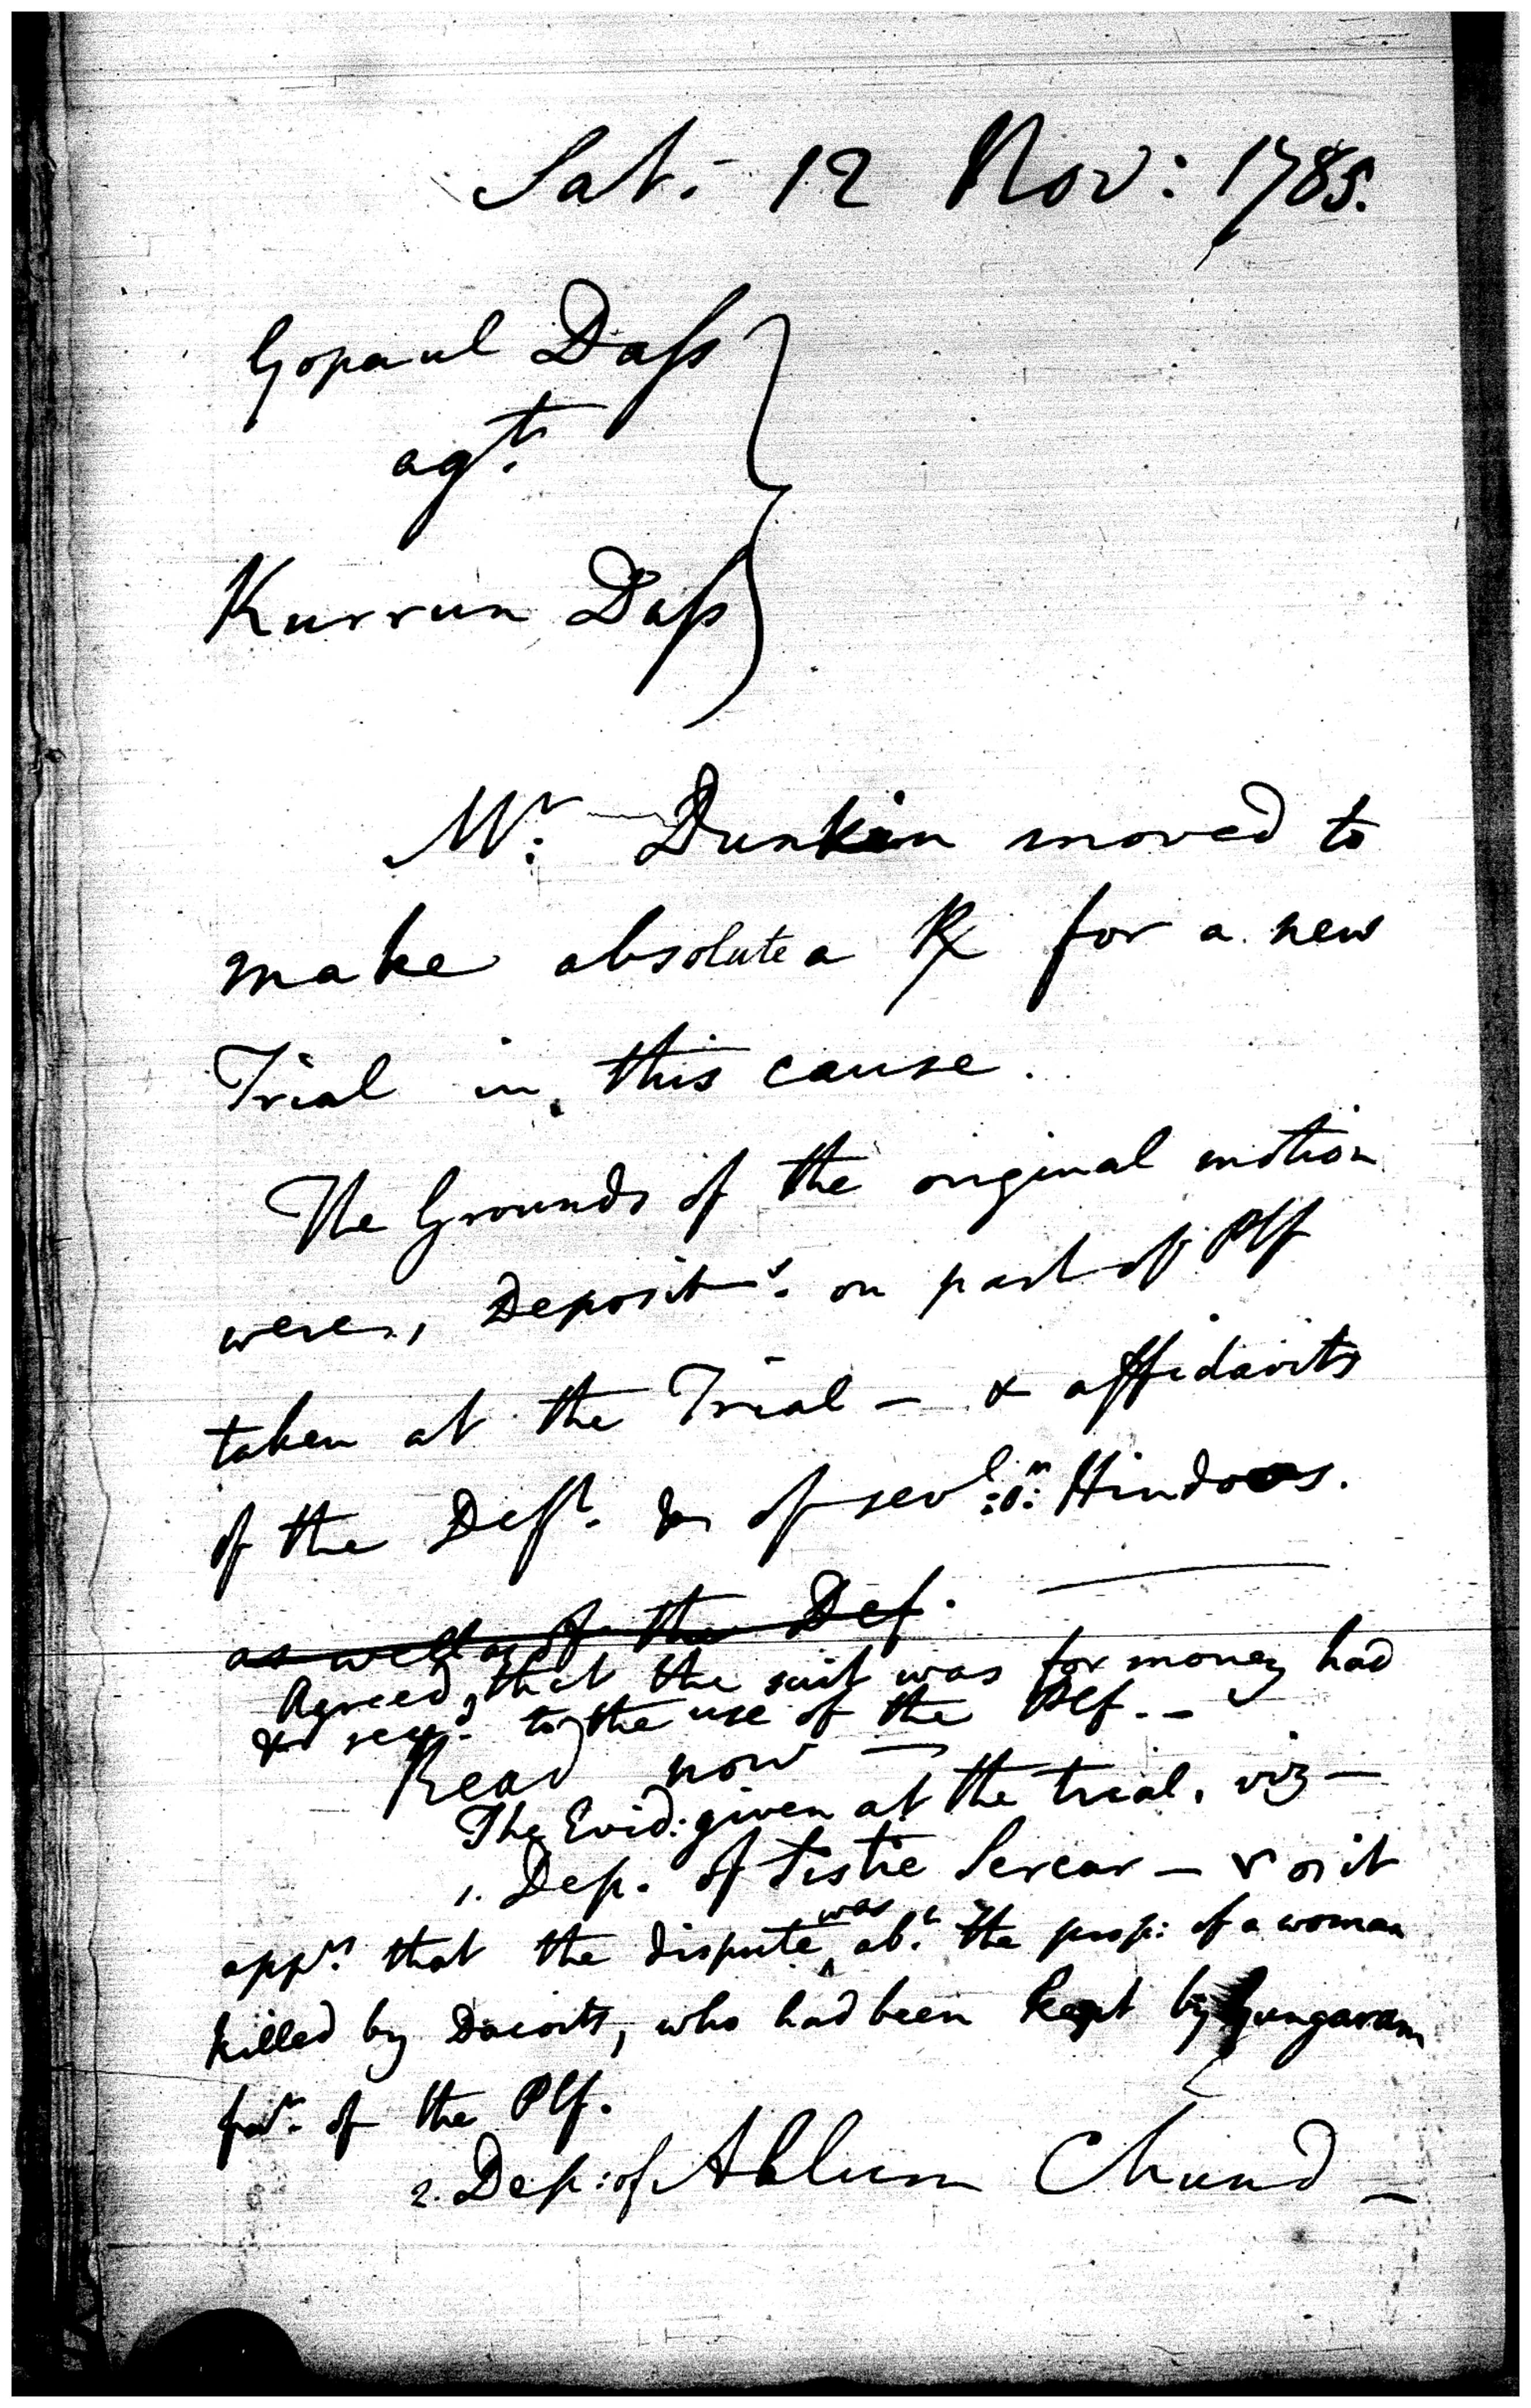 Sat. 12 Nov: 1785.
Gopaul Dass
agt.
Kurrun Dass
Mr. Dunkin moved to
make absolute a R for a new
Trial in this cause.
The Grounds of the original motion
were, Deposit.s on part of Plf
taken at the Trial — & affidavits
of the Deft. & of sevl. or. Hindoos.
as well as of the Def.
Agreed, that the suit was for money had
& recd. to the use of the Plf. —
Read now —
The Evid: given at the trial, viz —
1. Dep. of Sercar — it
appd. that the dispute was abt. the prop: of a woman
killed by Dacoits, who had been kept by Gungaram
of the Plf.
2. Dep: of Chund —